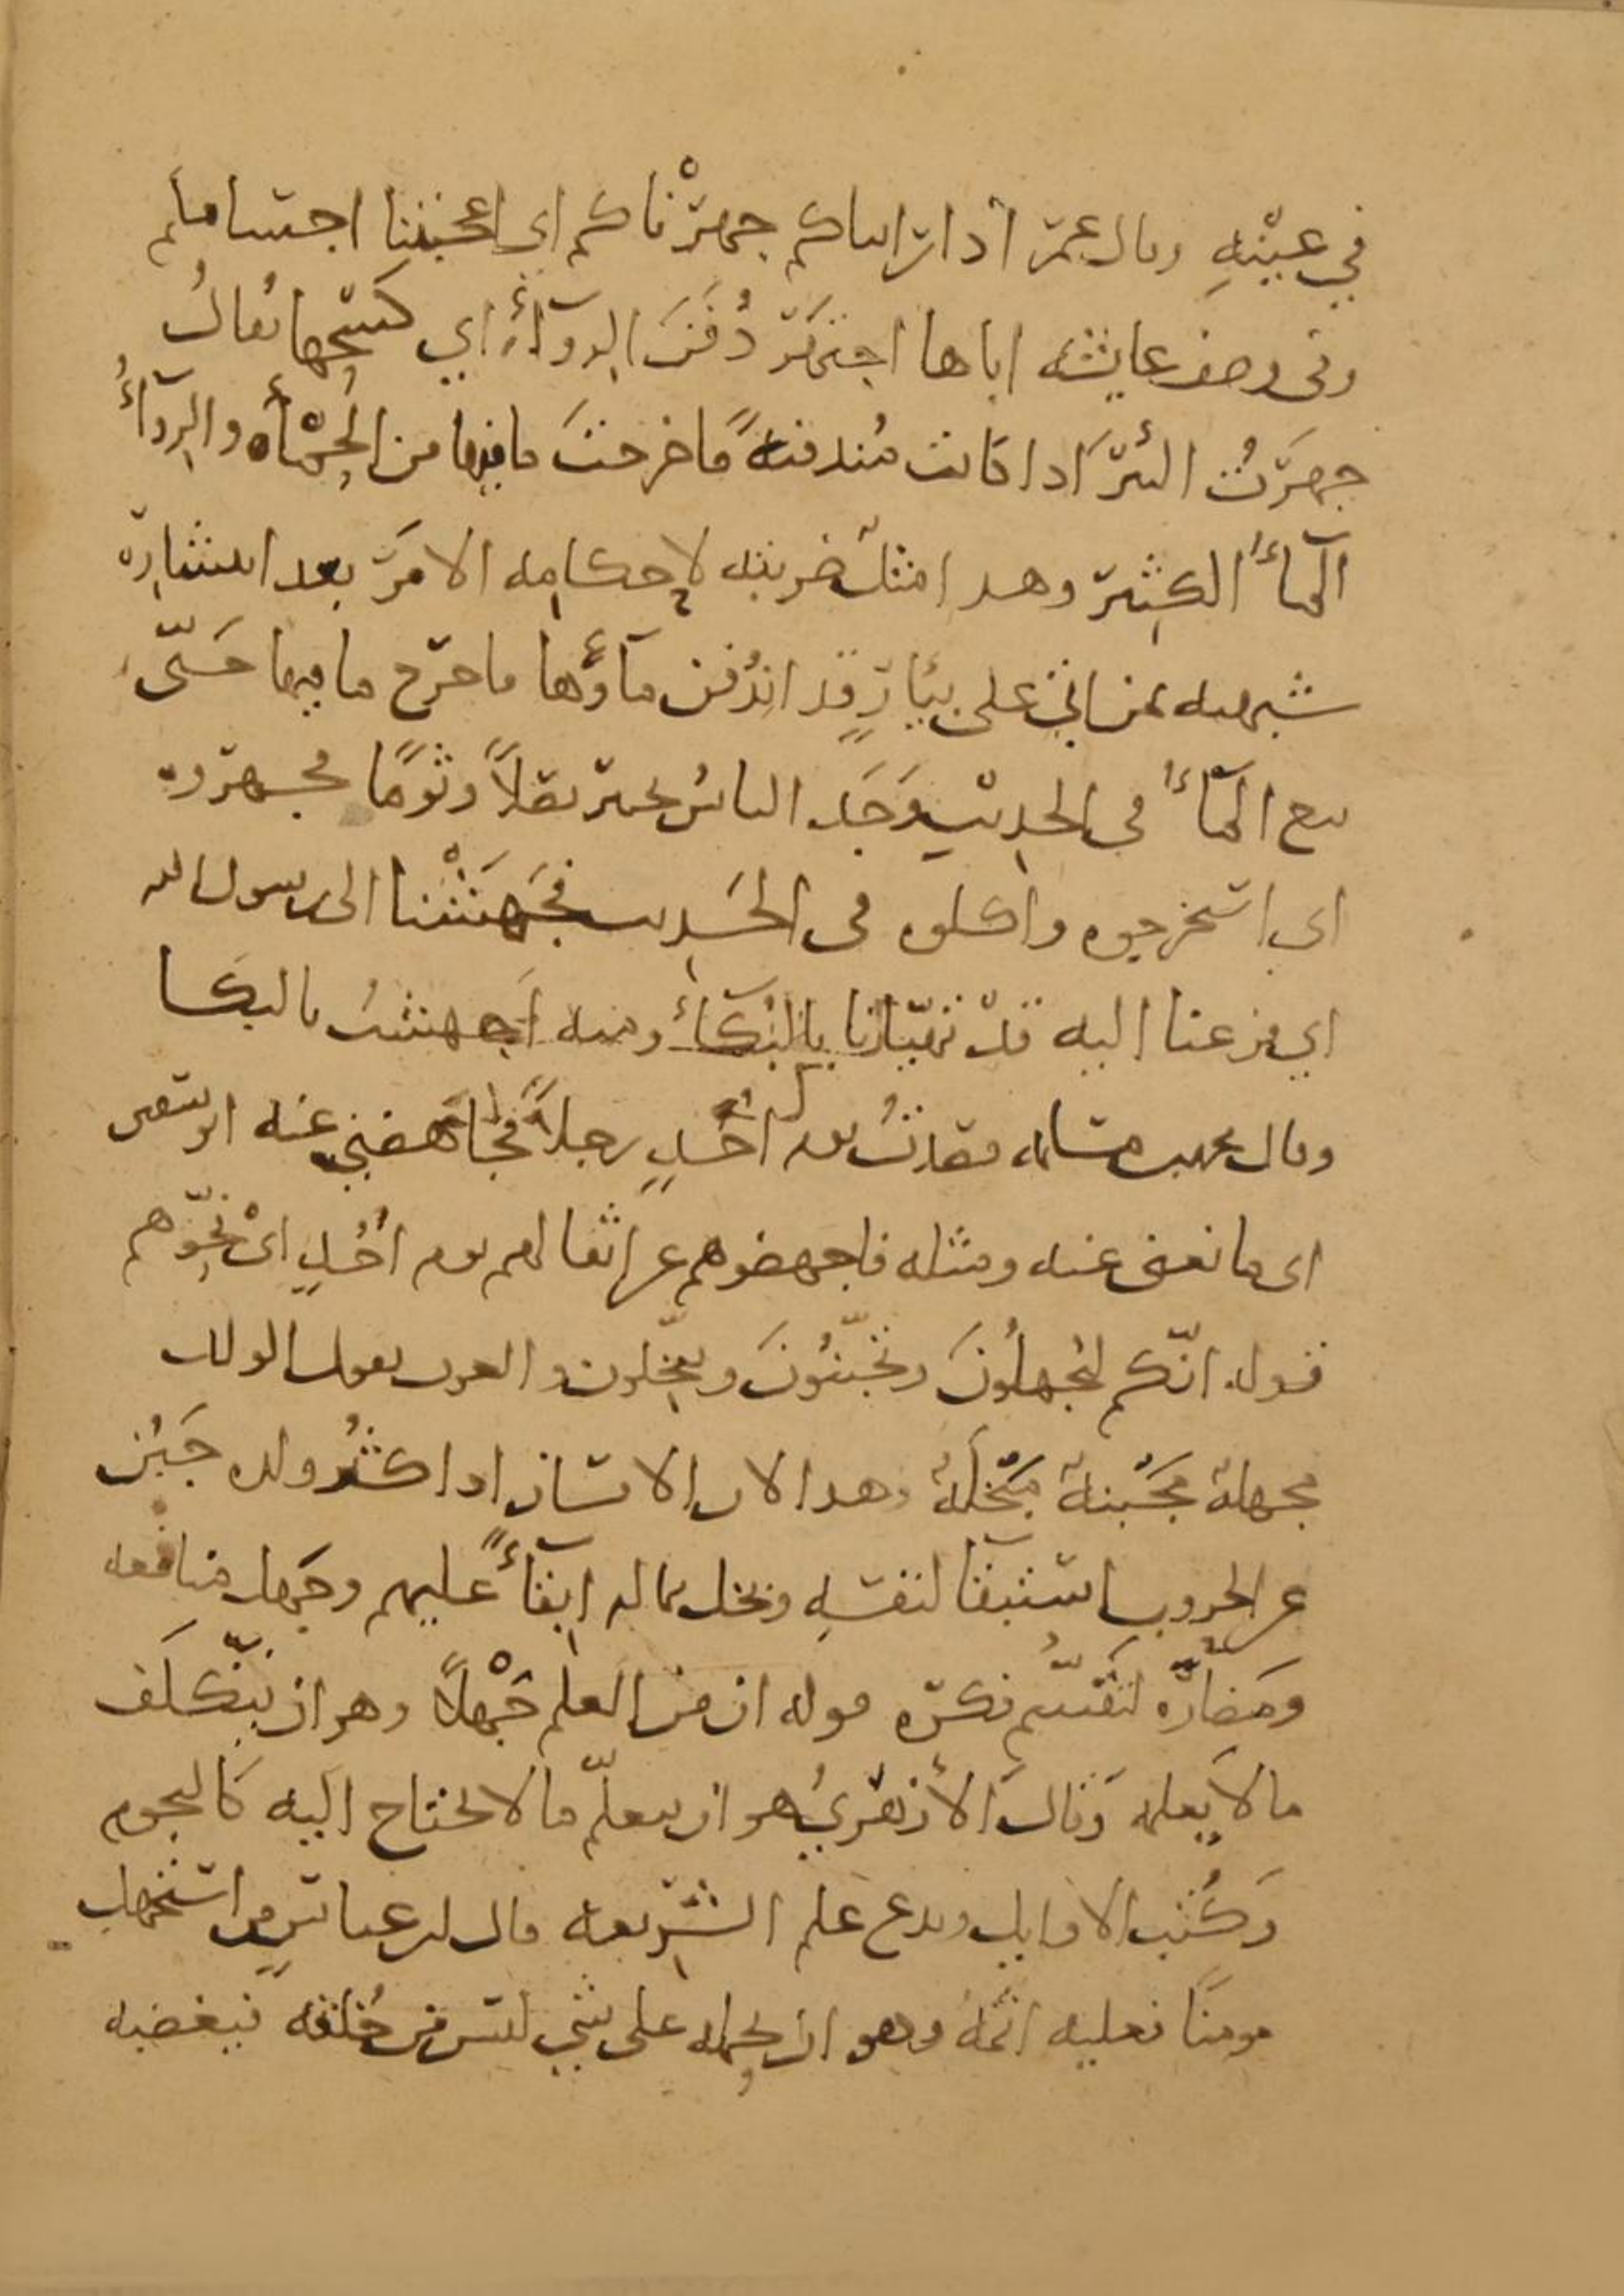 في عينه وقال عمر اذا رايناكم جهرناكم اي اعجبتنا اجسامكم
وفي وصف عايشه اباها اجتهر دُفُنَ الروآءِ اي كسحها يُقالُ
جهرتُ البئرَ اذا كانت مُندفنةً فاخرجتَ ما فيها من الحمْأه والروآءُ
المآءُ الكثير وهذا مثل ضربته لاحكامه الامرَ بعد انتشاره
شبهته بمن اتى على بئارٍ قد اندُفن مآؤها فاخرج ما فيها حتّى
نبع المآءُ في الحديث وَجَد الناسُ بخيبر بقلاً وثومًا فجهروه
اي استخرجوه واكلوه في الحديث فجَهَشْنا الى رسول الله
اي فزعنا اليه قد تهيّانا بالبُكآءِ ومنه اجهشتُ بالبكا
وقال محمد بن مسلمه فقصدتُ يوم اُحُدٍ رجلاً فجاهضني عنه ابو سفين
اي مانعني عنه ومثله فاجهضوهم عن اثقالهم يوم اُحُدٍ ايْ نحّوهم
قوله انّكم لتُجهلُونَ وتُجبّنُونَ وتبخّلون والعرب تقول الولد
مجهلة مَجْبنة مَبْخلَة وهذا لان الانسان اذا كثُر ولده جَبُن
عن الحروب استبقآ لنفسه وبخل بماله ابقآءً عليهم وجَهل منافعه
ومَضارّه لتَقسّم فكره قوله ان من العلم جَهْلاً وهو ان يتكلَف
ما لا يعلمه وَقالَ الأزهريُ هو ان يتعلّم ما لا يحتاج اليه كالنجوم
وكُتب الاوايل ويدع علم الشريعه قال ابن عباس من استجهل
مومنًا فعليه اثمُهُ وهو ان يحمله على شي ليس من خُلقه فيغضبه